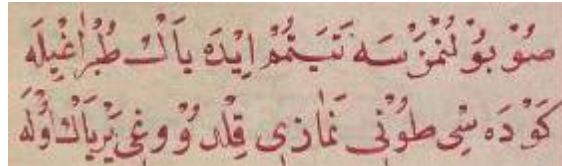 صُوْ بُوْلُنْمَزْسَه تَيَمُّمْ ايْدَه پَاكْ طُپْرَاغِيلَه
كَوْدَه سِي طُونِي نَمَازِي قِلْدُوغِي يَرْ پَاكْ اُولَه